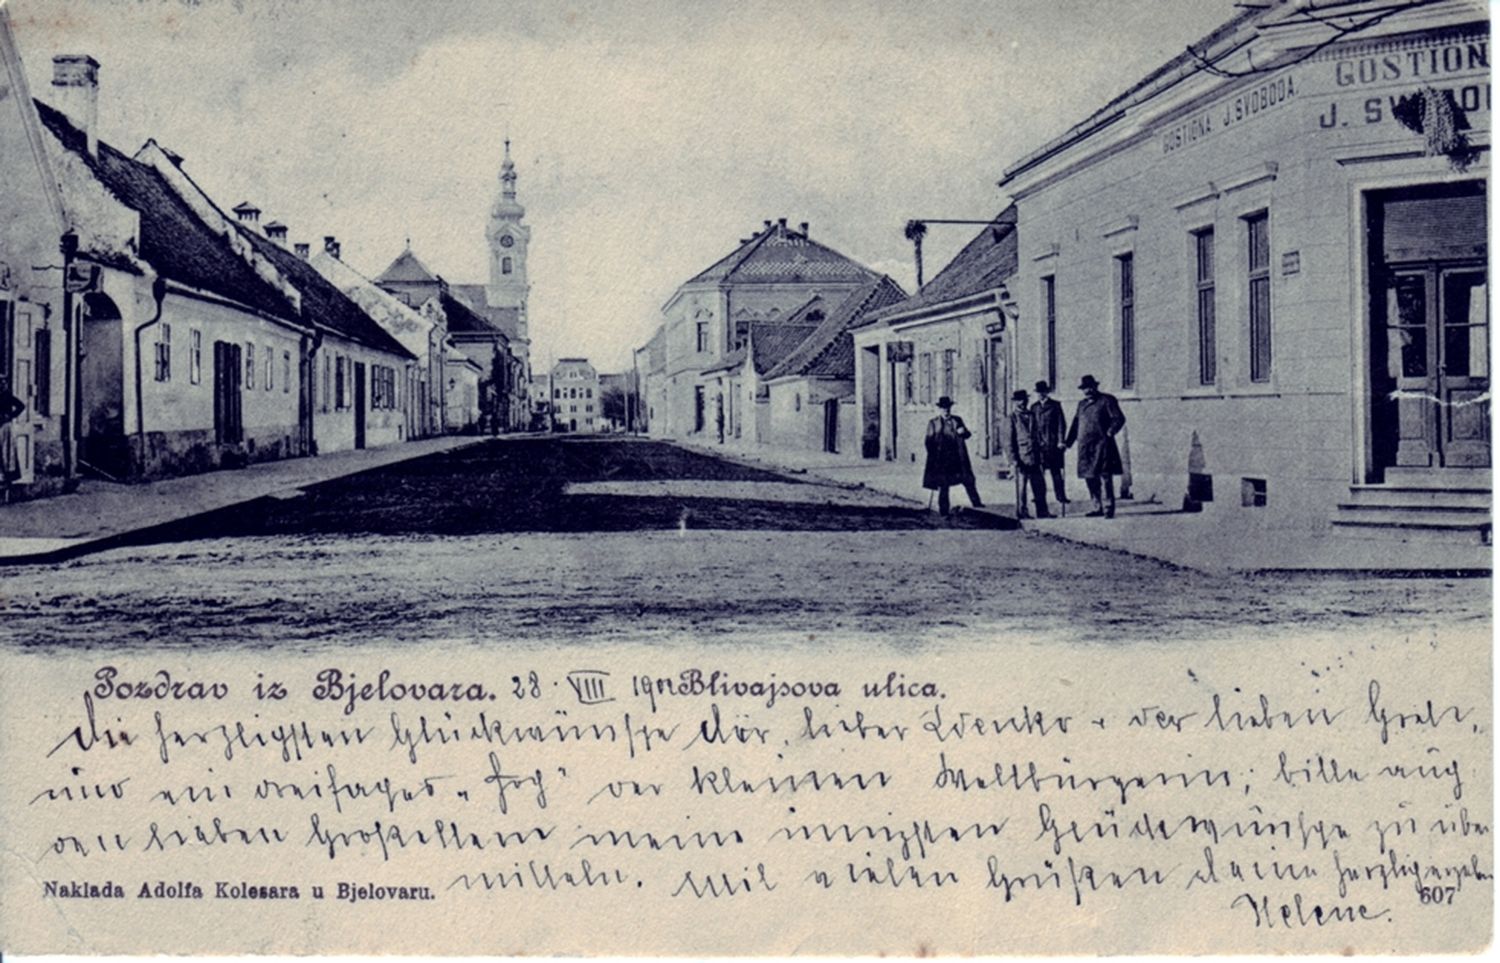 GOSTIONA J. SVOBODA.
GOSTION
J. SVOBOD
Pozdrav iz Bjelovara. 28. VIII 1902 Blivajsova ulica.
Die herzlichsten Glückwünsche dir, lieber Zdenko u. der lieben Gretl,
und ein dreifaches „Hoch" der kleinen Weltbürgerin; bitte auch
den lieben Großeltern meine innigsten Glückwünsche zu über
mitteln. Mit vielen Grüßen deine herzlich ergebene
Helene.
Naklada Adolfa Kolesara u Bjelovaru.
607